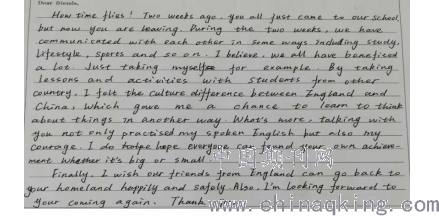 Dear friends,
How time flies! Two weeks ago, you all just came to our school,
but now you are leaving. During the two weeks, we have
communicated with each other in some ways including study,
lifestyle, sports and so on. I believe, we all have benefised
a lot. Just taking myself for example. By taking
lessons and activities with students from other
country. I felt the culture difference between England and
China, which gave me a chance to learn to think
about things in another way. What's more, talking with
you not only practised my spoken English but also my
courage. I do hope everyone can found your own achieve-
ment whether it's big or small.
Finally, I wish our friends from England can go back to
your homeland happily and safely. Also, I'm looking forward to
your coming again. Thank you
中国期刊网
www.chinaqking.com